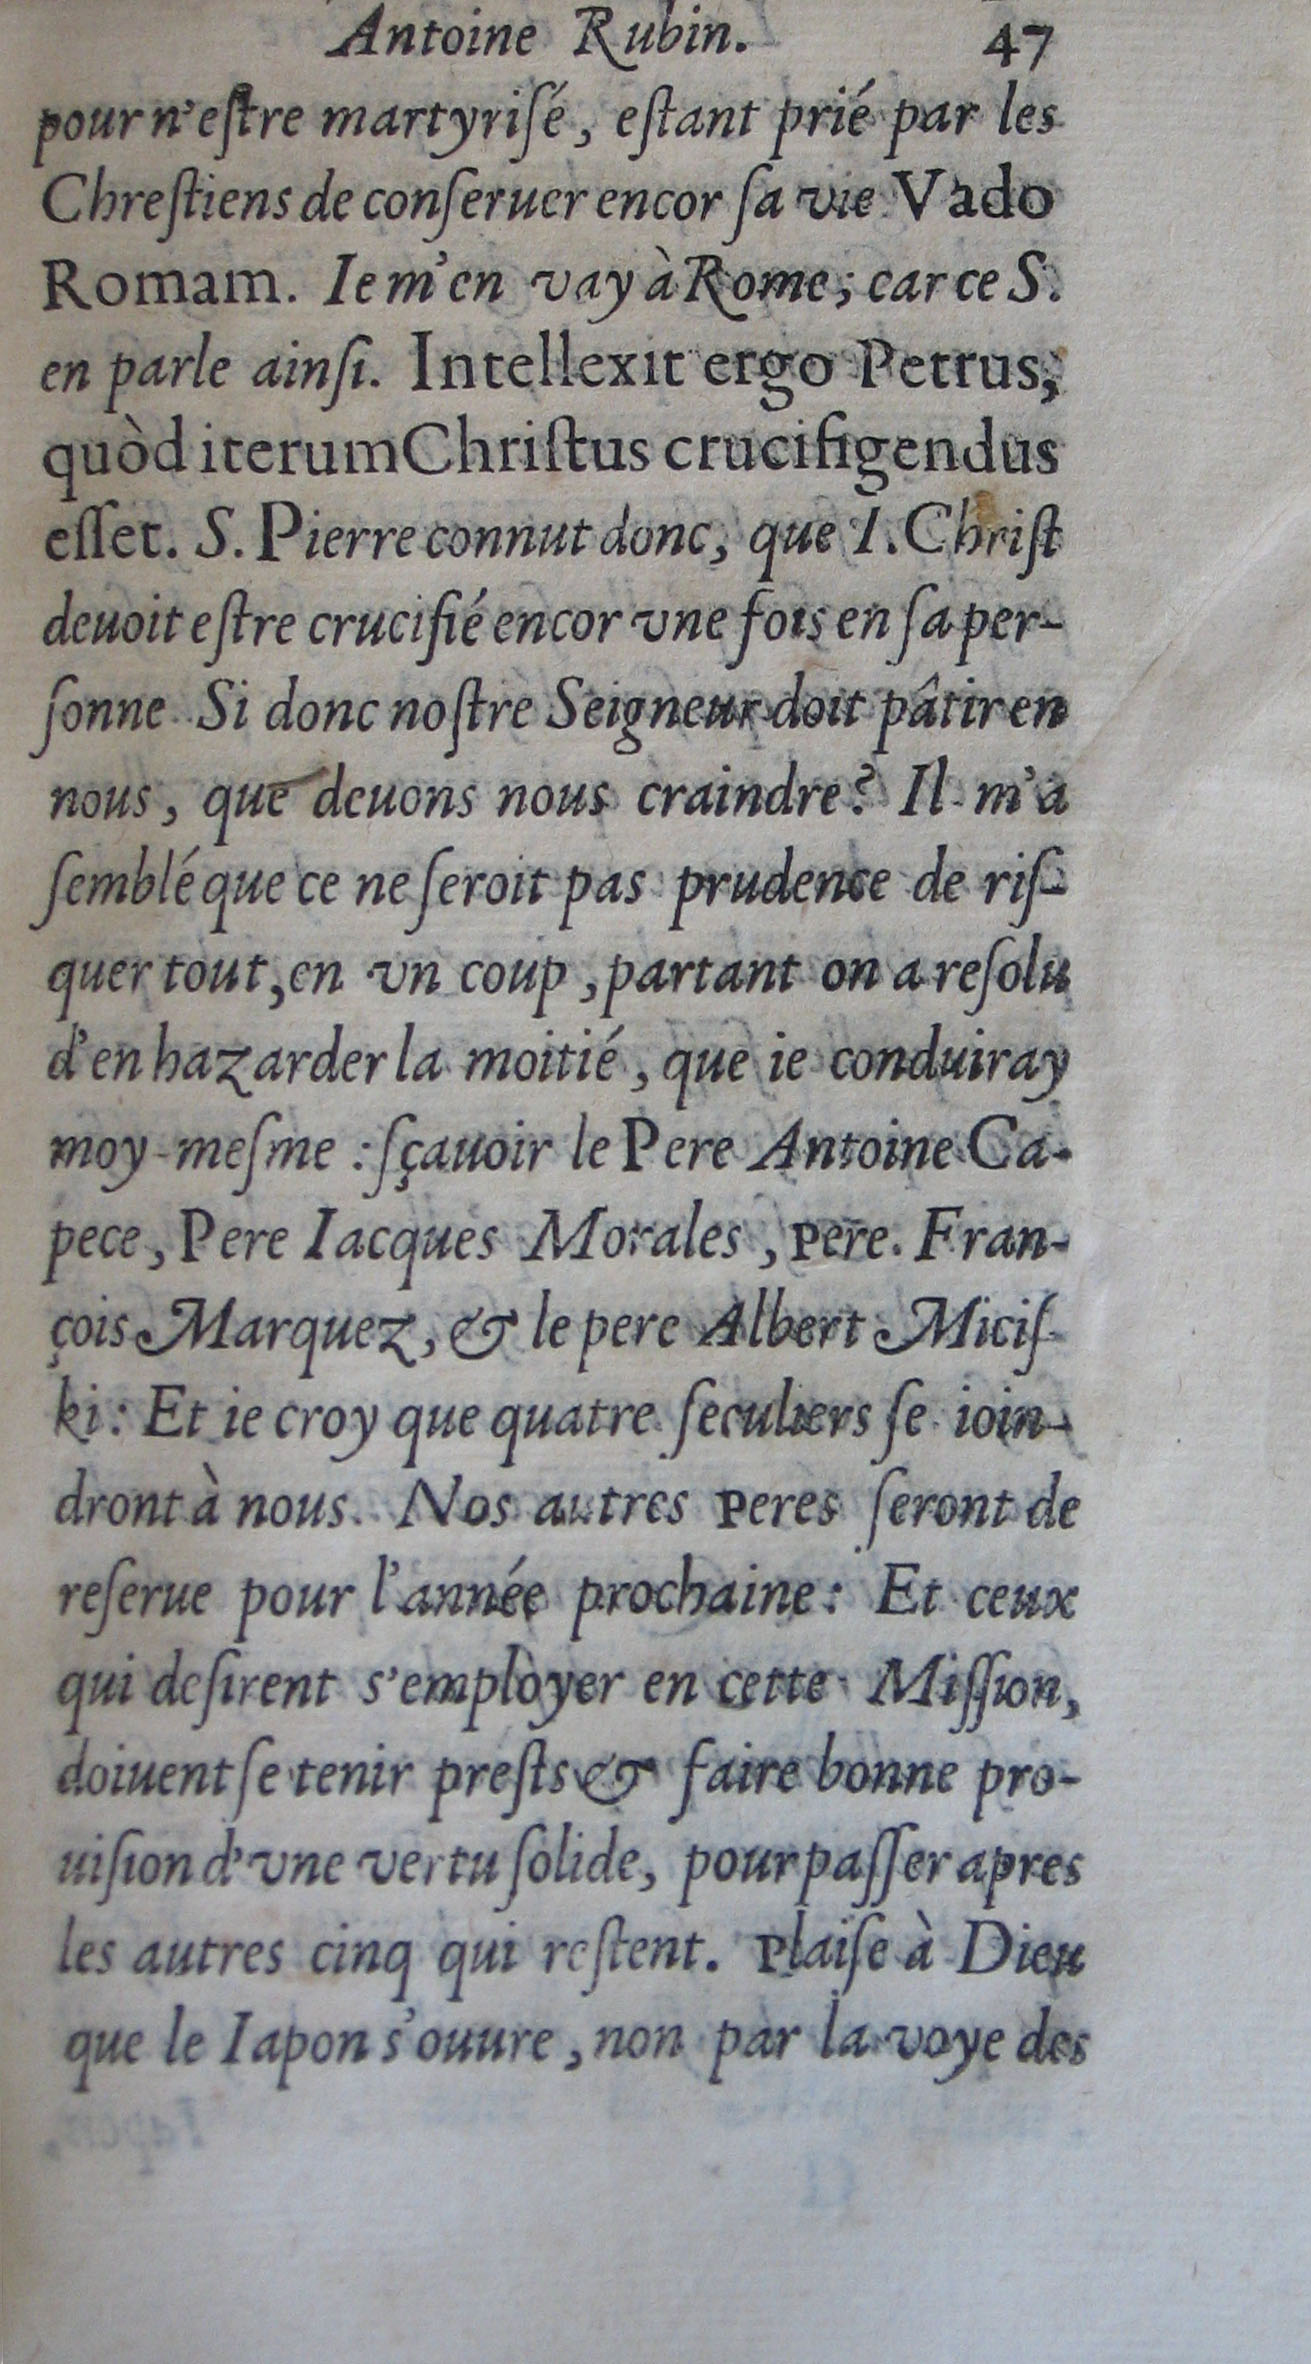 Antoine Rubin. 47
pour n'eſtre martyriſé, eſtant prié par les
Chreſtiens de conſeruer encor ſa vie Vado
Romam. Ie m'en vay à Rome; car ce S.
en parle ainſi. Intellexit ergo Petrus,
quòd iterum Chriſtus crucifigendus
eſſet. S. Pierre connut donc, que I. Chriſt
deuoit eſtre crucifié encor vne fois en ſa per-
ſonne Si donc noſtre Seigneur doit pâtir en
nous, que deuons nous craindre? Il m'a
ſemblé que ce ne ſeroit pas prudence de riſ-
quer tout, en vn coup, partant on a reſolu
d'en hazarder la moitié, que ie conduiray
moy-meſme : ſçauoir le Pere Antoine Ca-
pece, Pere Iacques Morales, Pere. Fran-
çois Marquez, & le pere Albert Miciſ-
ki: Et ie croy que quatre ſeculiers ſe ioin-
dront à nous. Nos autres Peres ſeront de
reſerue pour l'année prochaine: Et ceux
qui deſirent s'employer en cette Miſſion,
doiuent ſe tenir preſts & faire bonne pro-
uiſion d'vne vertu ſolide, pour paſſer apres
les autres cinq qui reſtent. Plaiſe à Dieu
que le Iapon s'ouure, non par la voye des